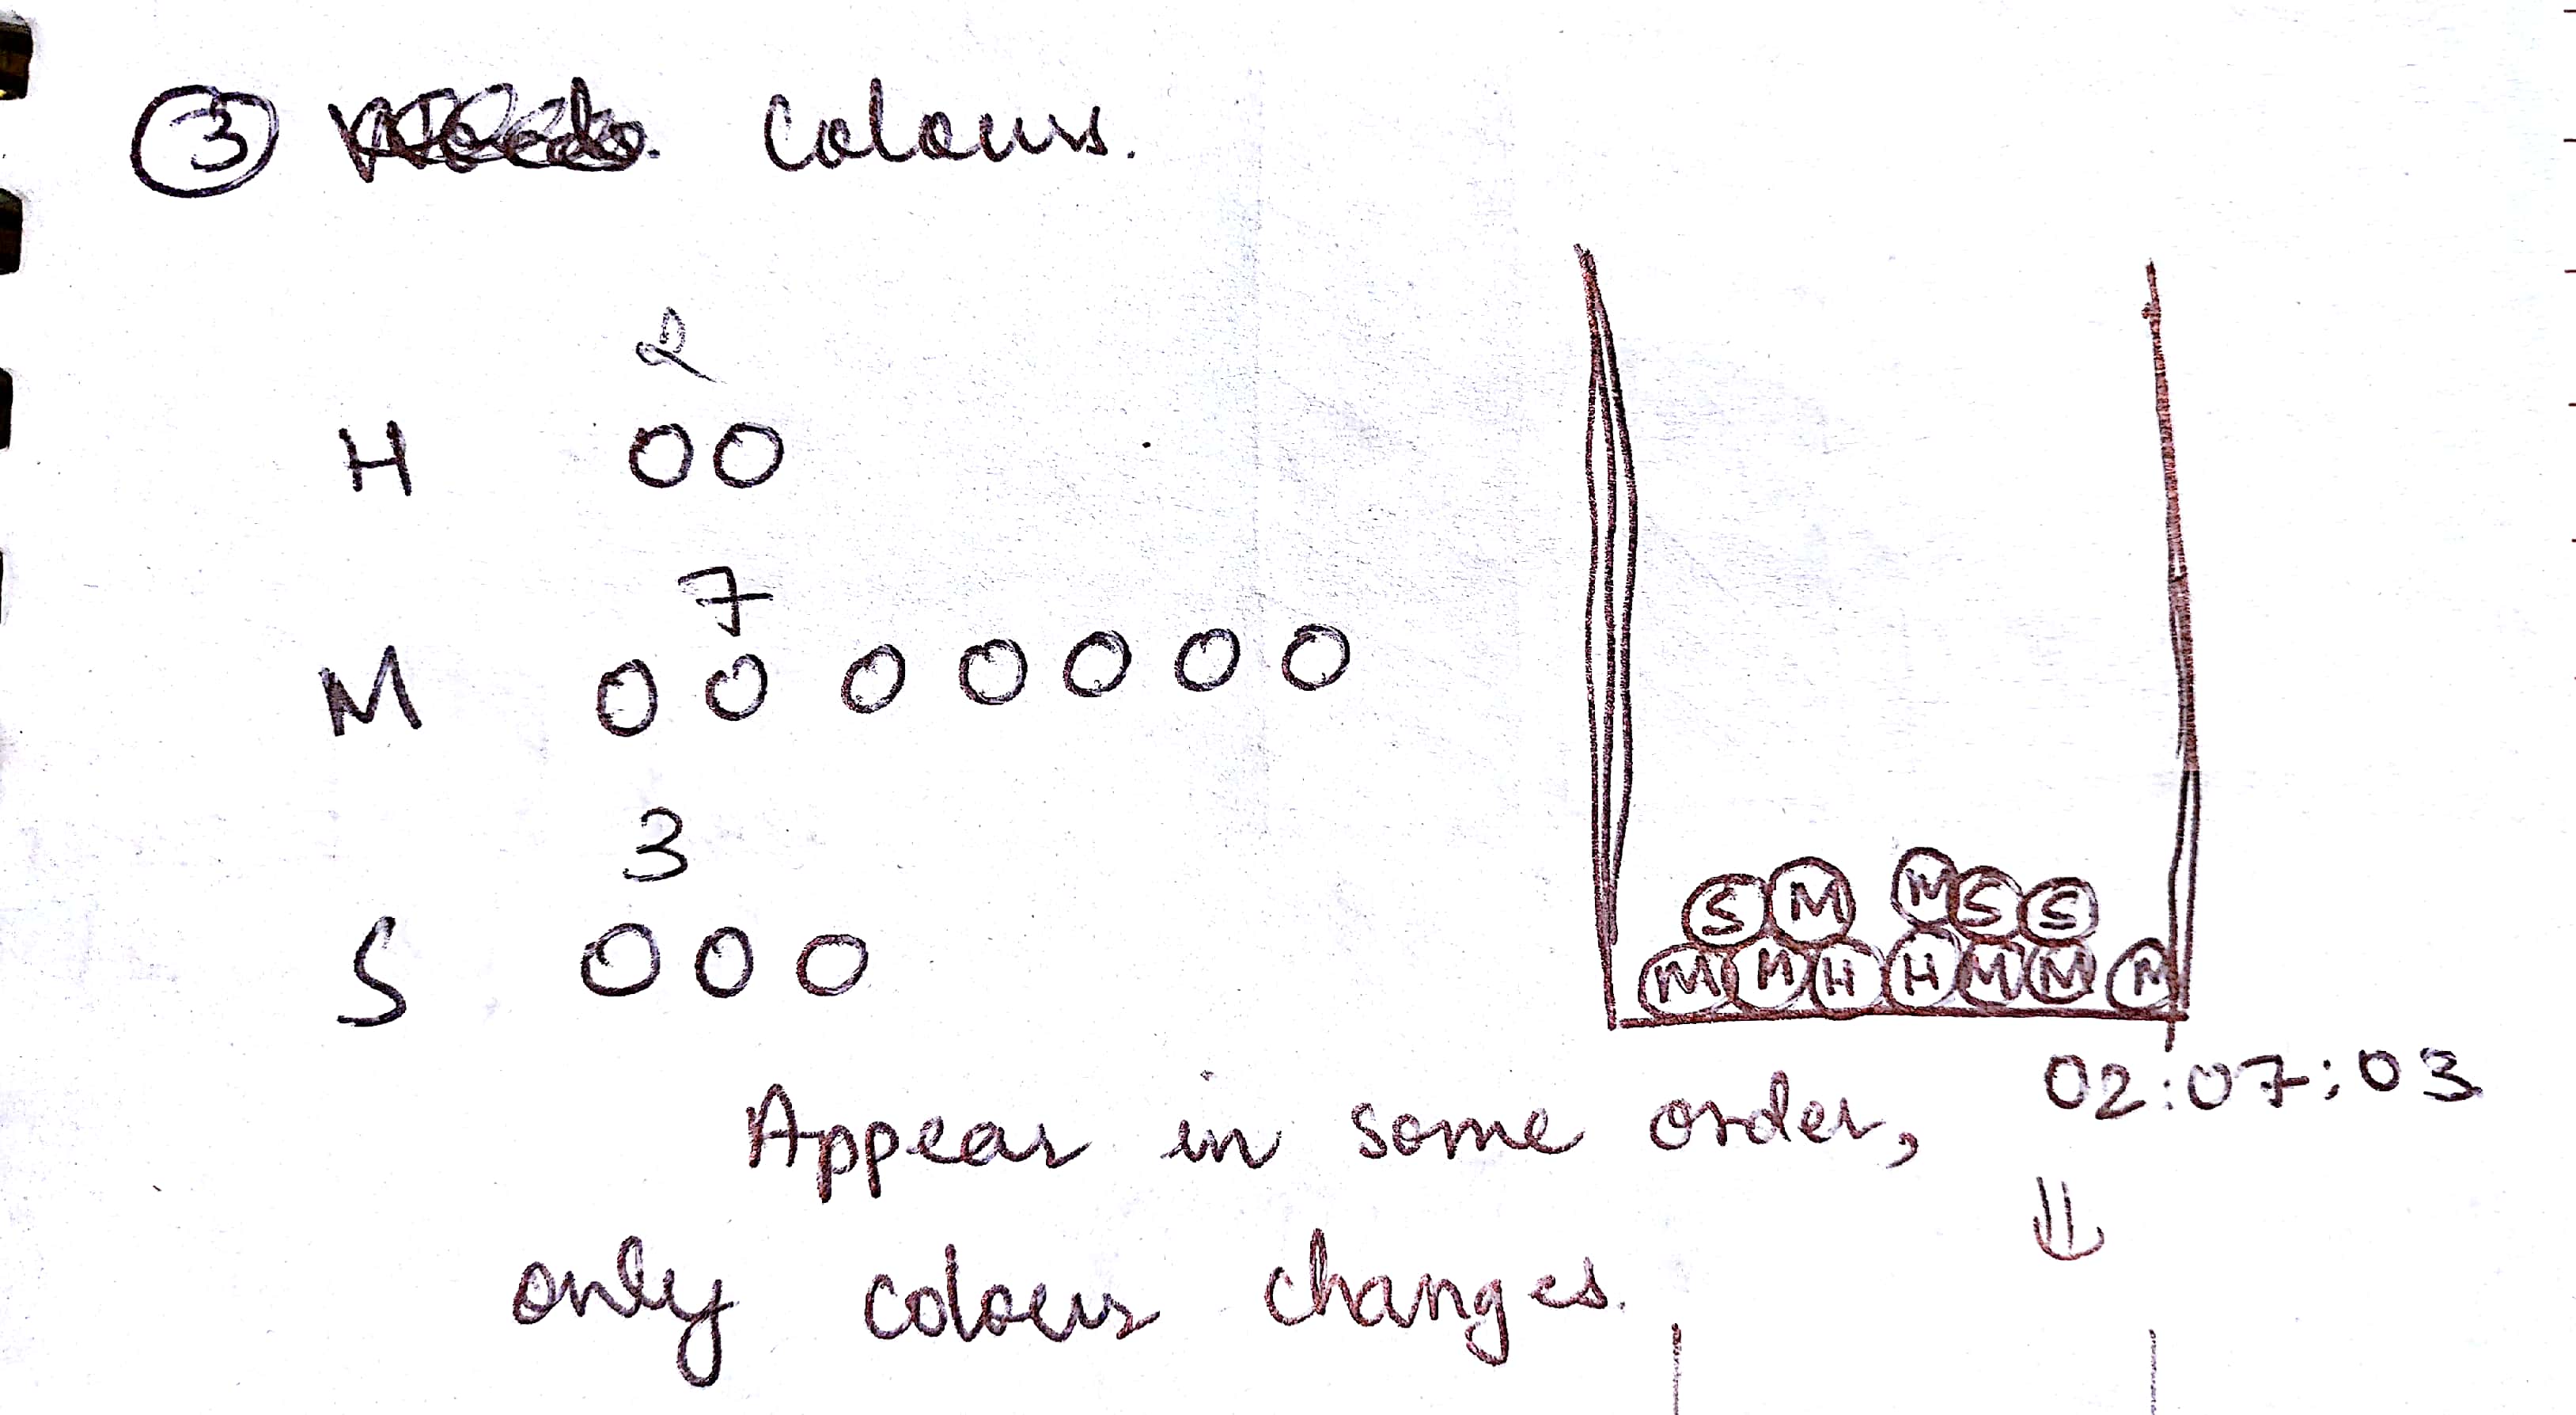 ③ Colours.
2
H OO
7
M O O O O O O O
3
S O O O
S M M S S
M M H H M M M
02:07:03
Appear in some order,
⇓
only colour changes.